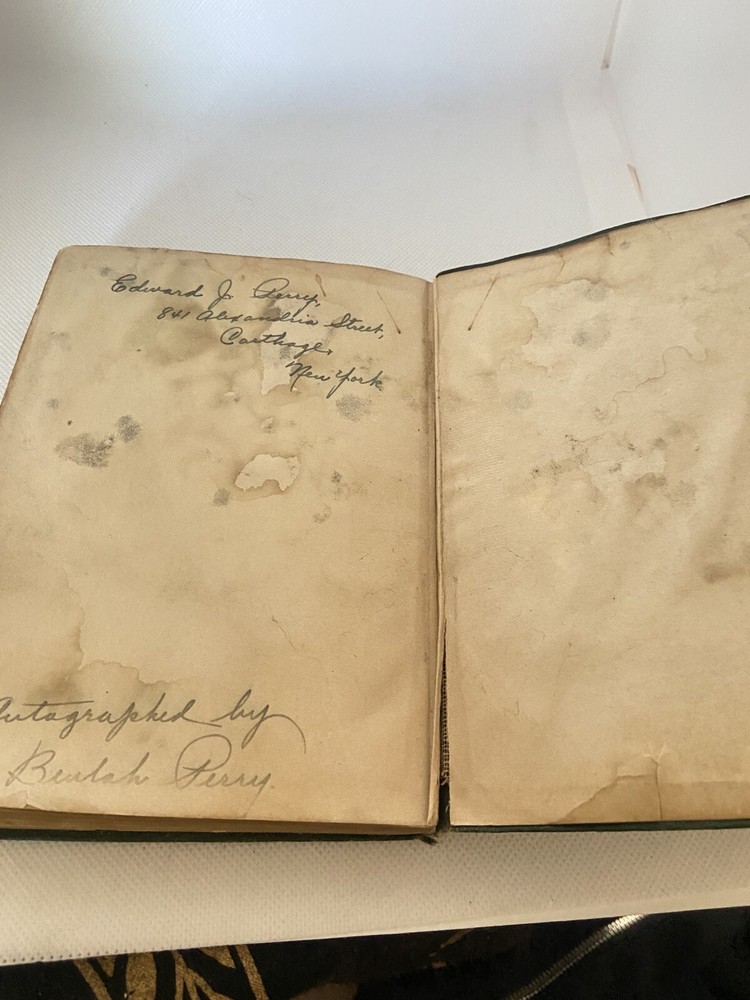 Edward J. Perry,
841 Alexandria Street,
Carthage,
New York
Autographed by
Beulah Perry.